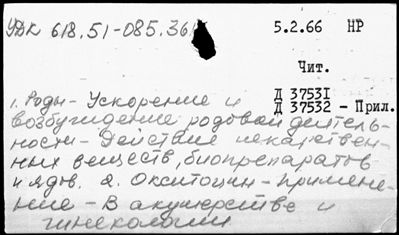 УДК 618.51-085.361 5.2.66 НР
Чит.
Д 37531
Д 37532 - Прил.
1. Роды - Ускорение и
возбуждение родовой деятель-
ности - Действие лекарствен-
ных веществ, биопрепаратов
и ядов. 2. Окситоцин - Примене-
ние - В акушерстве и
гинекологии